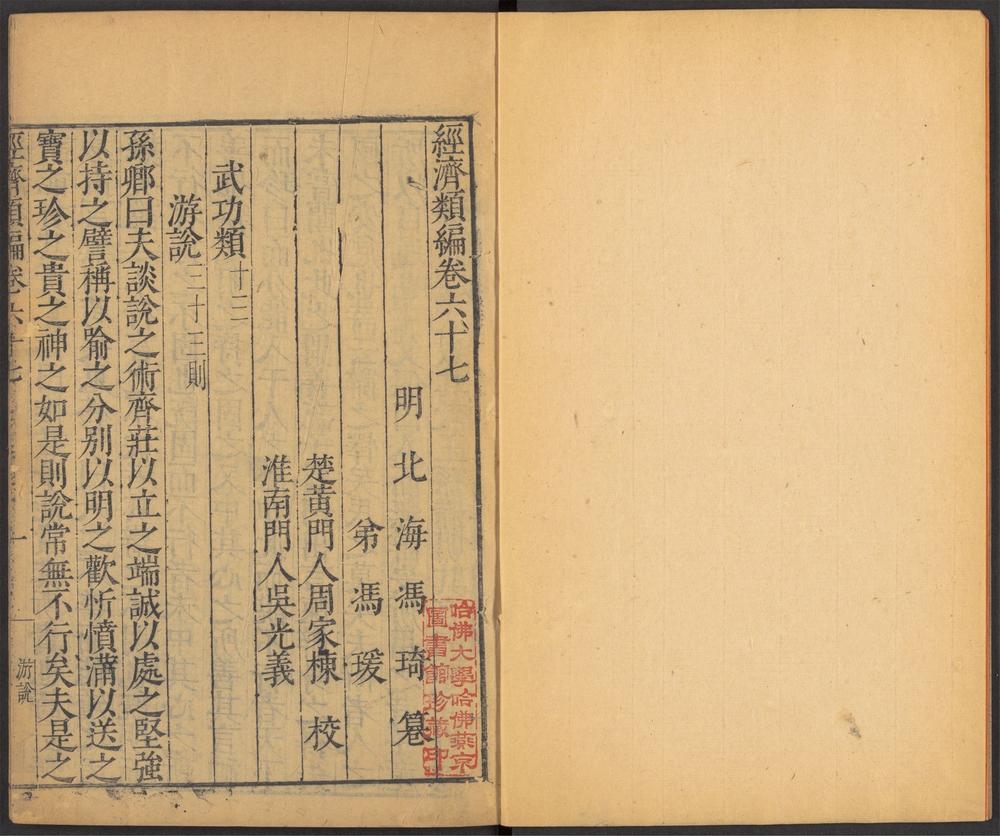 經濟類編卷六十七
明北海馮琦纂
弟馮瑗
楚黃門人周家棟校
淮南門人吳光義
武功類十三
游說三十三則
孫卿曰夫談說之術齊莊以立之端誠以處之堅強
以持之譬稱以喻之分別以明之歡忻憤滿以送之
寶之珍之貴之神之如是則說常無不行矣夫是之
經濟類編卷六十七
游說
一
哈佛大學哈佛燕京
圖書館珍藏印